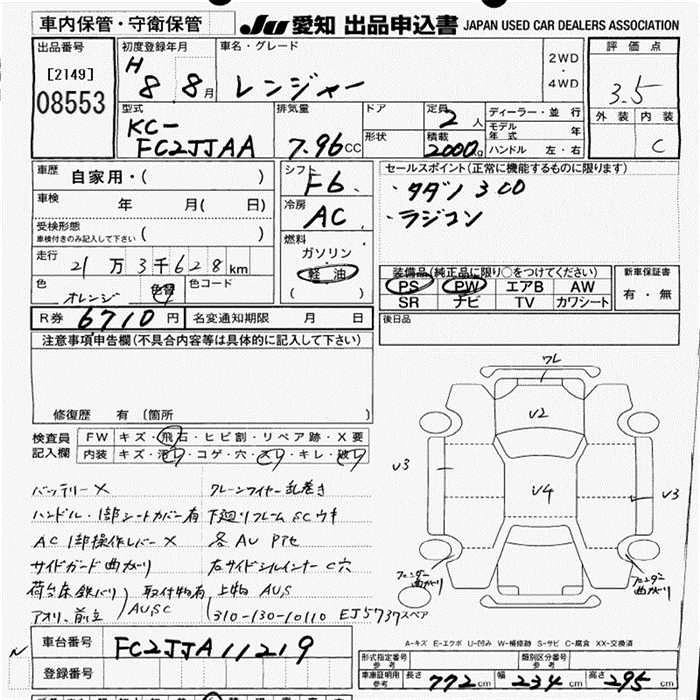 車内保管・守衛保管
JU 愛知 出品申込書 JAPAN USED CAR DEALERS ASSOCIATION
出品番号
[2149]
08553
初度登録年月
H 8 8月
車名・グレード
レンジャー
2WD
・
4WD
評価点
3.5
外装 内装
C
型式
KC-
FC2JJAA
排気量
7.96CC
ドア
形状
定員
2人
積載
2000kg
ディーラー・並行
モデル年式 年
ハンドル 左・右
車歴
自家用・( )
車検 年 月( 日)
受検形態
車検付きのみ記入して下さい ( )
走行
21万3千628km
色
オレンジ
色替
色コード
シフト
F6
冷房
AC
燃料
ガソリン
軽油
( )
セールスポイント(正常に機能するものに限ります)
・タダノ 300
・ラジコン
装備品(純正品に限り○をつけてください)
PS PW エアB AW
SR ナビ TV カワシート
新車保証書
有・無
R券 6710円 名変通知期限 月 日
後日品
注意事項申告欄(不具合内容等は具体的に記入して下さい)
修復歴 有(箇所 )
検査員
記入欄
FW キズ・飛石・ヒビ割・リペア跡・X要
内装 キズ・汚レ・コゲ・穴・スレ・キレ・破レ
バッテリーX
ハンドル・1部シートカバー有
AC 1部操作レバーX
サイドガード曲ガリ
荷台床鉄バリ
アオリ、前立
取付物有
AU,SC
クレーンワイヤー乱巻き
下廻りフレーム SC ウキ
各 AU
左サイドシルインナーC穴
上物 AU,S
310-130-10110 EJ5737スペア
ワレ
U2
U3
U4
U3
フェンダー曲ガリ
フェンダー曲ガリ
A-キズ E-エクボ U-凹み W-補修跡 S-サビ C-腐食 XX-交換済
車台番号
FC2JJA11219
登録番号
型式指定番号
参考
類別区分番号
参考
車庫証明用
参考
長さ 772cm 幅 234cm 高さ 295cm